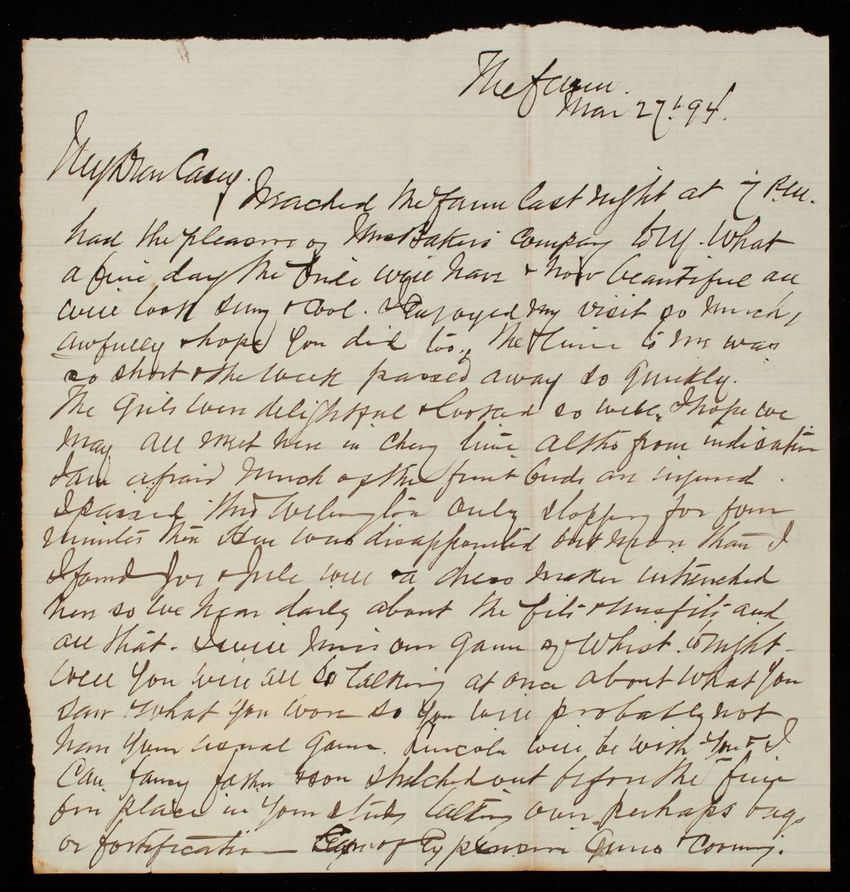 The farm.
Mar 27th 94.
My Dear Casey.
I reached the farm last night at 7 P.M.
had the pleasure of Mrs Bakers Company to W. What
a fine day the bride will have & how beautiful all
will look sung & cool. I enjoyed my visit so much,
awfully & hope you did too, the time to me was
so short & the week passed away so quickly.
The girls were delightful & looked so well. I hope we
may all meet here in cherry time altho from indication
I am afraid much of the fruit buds are injured.
I passed thro Wilmington only stopping for four
minutes then & was disappointed one more than I
I found Joe & Julie well & a dress maker intrenched
here so we hear daily about the fits & misfits and
all that. I will miss our game of Whist. to night.
well you will all be talking at once about what you
saw & what you wore so you will probably not
have your usual game. Lincoln will be with you & I
can fancy father & son stretched out before the fine
fire place in your study talking over perhaps bugs
or fortification expensive Guns & Convoy.